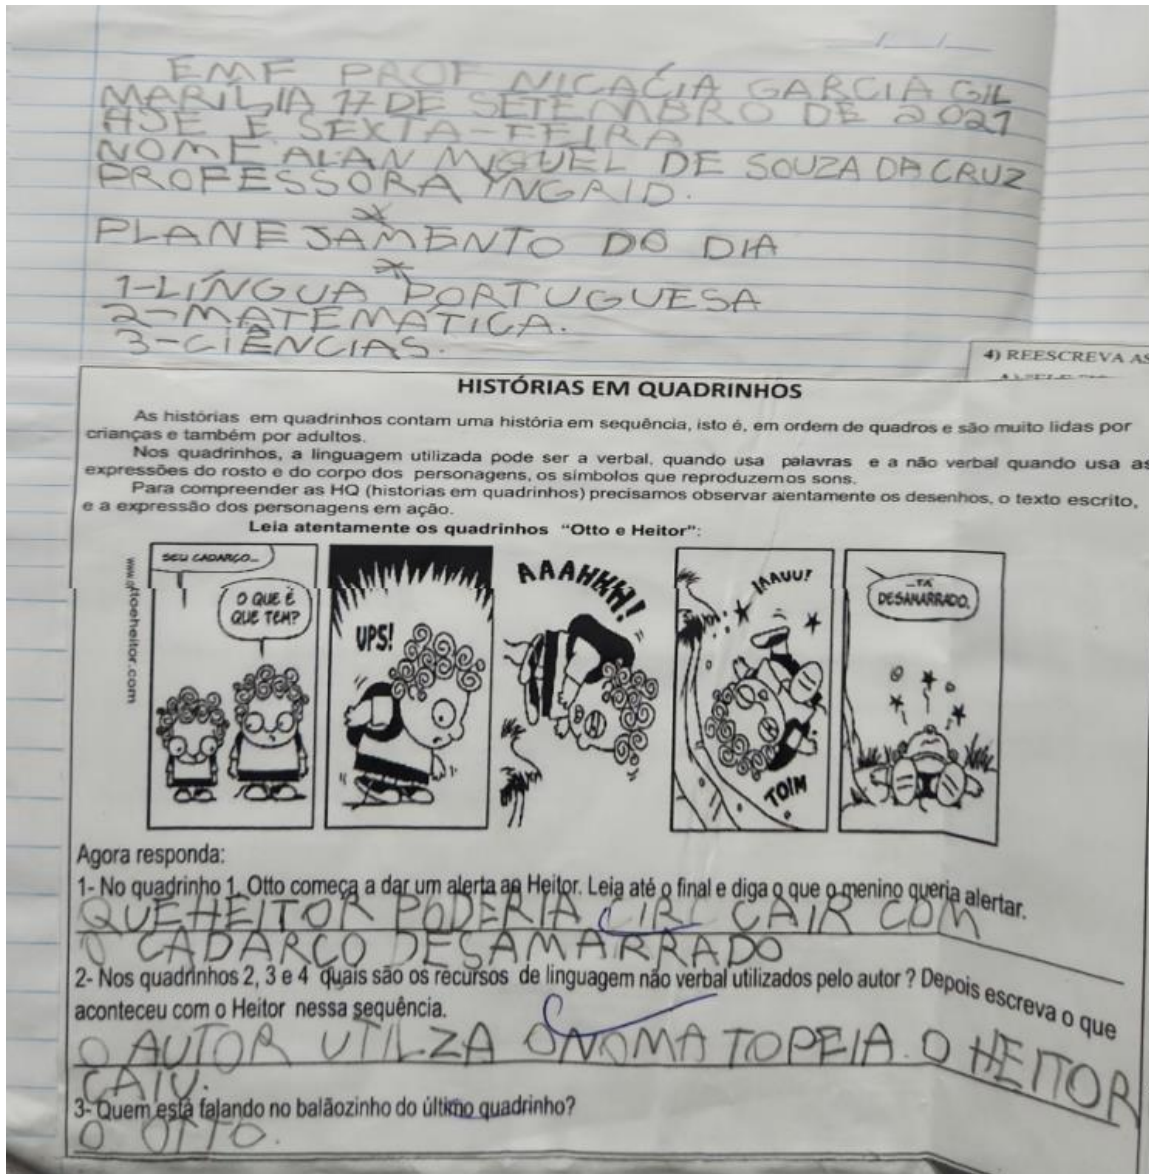 EMF PROF NICACIA GARCIA GIL
MARÍLIA 17 DE SETEMBRO DE 2021
HJE E SEXTA-FEIRA
NOME ALAN MIGUEL DE SOUZA DA CRUZ
PROFESSORA YNGRID.
PLANEJAMENTO DO DIA
1-LÍNGUA PORTUGUESA
2-MATEMÁTICA.
3-CIÊNCIAS.
4) REESCREVA AS
HISTÓRIAS EM QUADRINHOS
As histórias em quadrinhos contam uma história em sequência, isto é, em ordem de quadros e são muito lidas por
crianças e também por adultos.
Nos quadrinhos, a linguagem utilizada pode ser a verbal, quando usa palavras e a não verbal quando usa as
expressões do rosto e do corpo dos personagens, os símbolos que reproduzem os sons.
Para compreender as HQ (historias em quadrinhos) precisamos observar atentamente os desenhos, o texto escrito,
e a expressão dos personagens em ação.
Leia atentamente os quadrinhos "Otto e Heitor":
www.ottoeheitor.com
SEU CADARÇO...
O QUE É
QUE TEM?
UPS!
AAAHHH!
IAAUU!
TOIM
...TÁ
DESAMARRADO.
Agora responda:
1- No quadrinho 1, Otto começa a dar um alerta ao Heitor. Leia até o final e diga o que o menino queria alertar.
QUE HEITOR PODERIA CIR CAIR COM
O CADARCO DESAMARRADO
2- Nos quadrinhos 2, 3 e 4 quais são os recursos de linguagem não verbal utilizados pelo autor ? Depois escreva o que
aconteceu com o Heitor nessa sequência.
O AUTOR UTILZA ONOMATOPEIA. O HEITOR
CAIU.
3- Quem está falando no balãozinho do último quadrinho?
O OTTO.